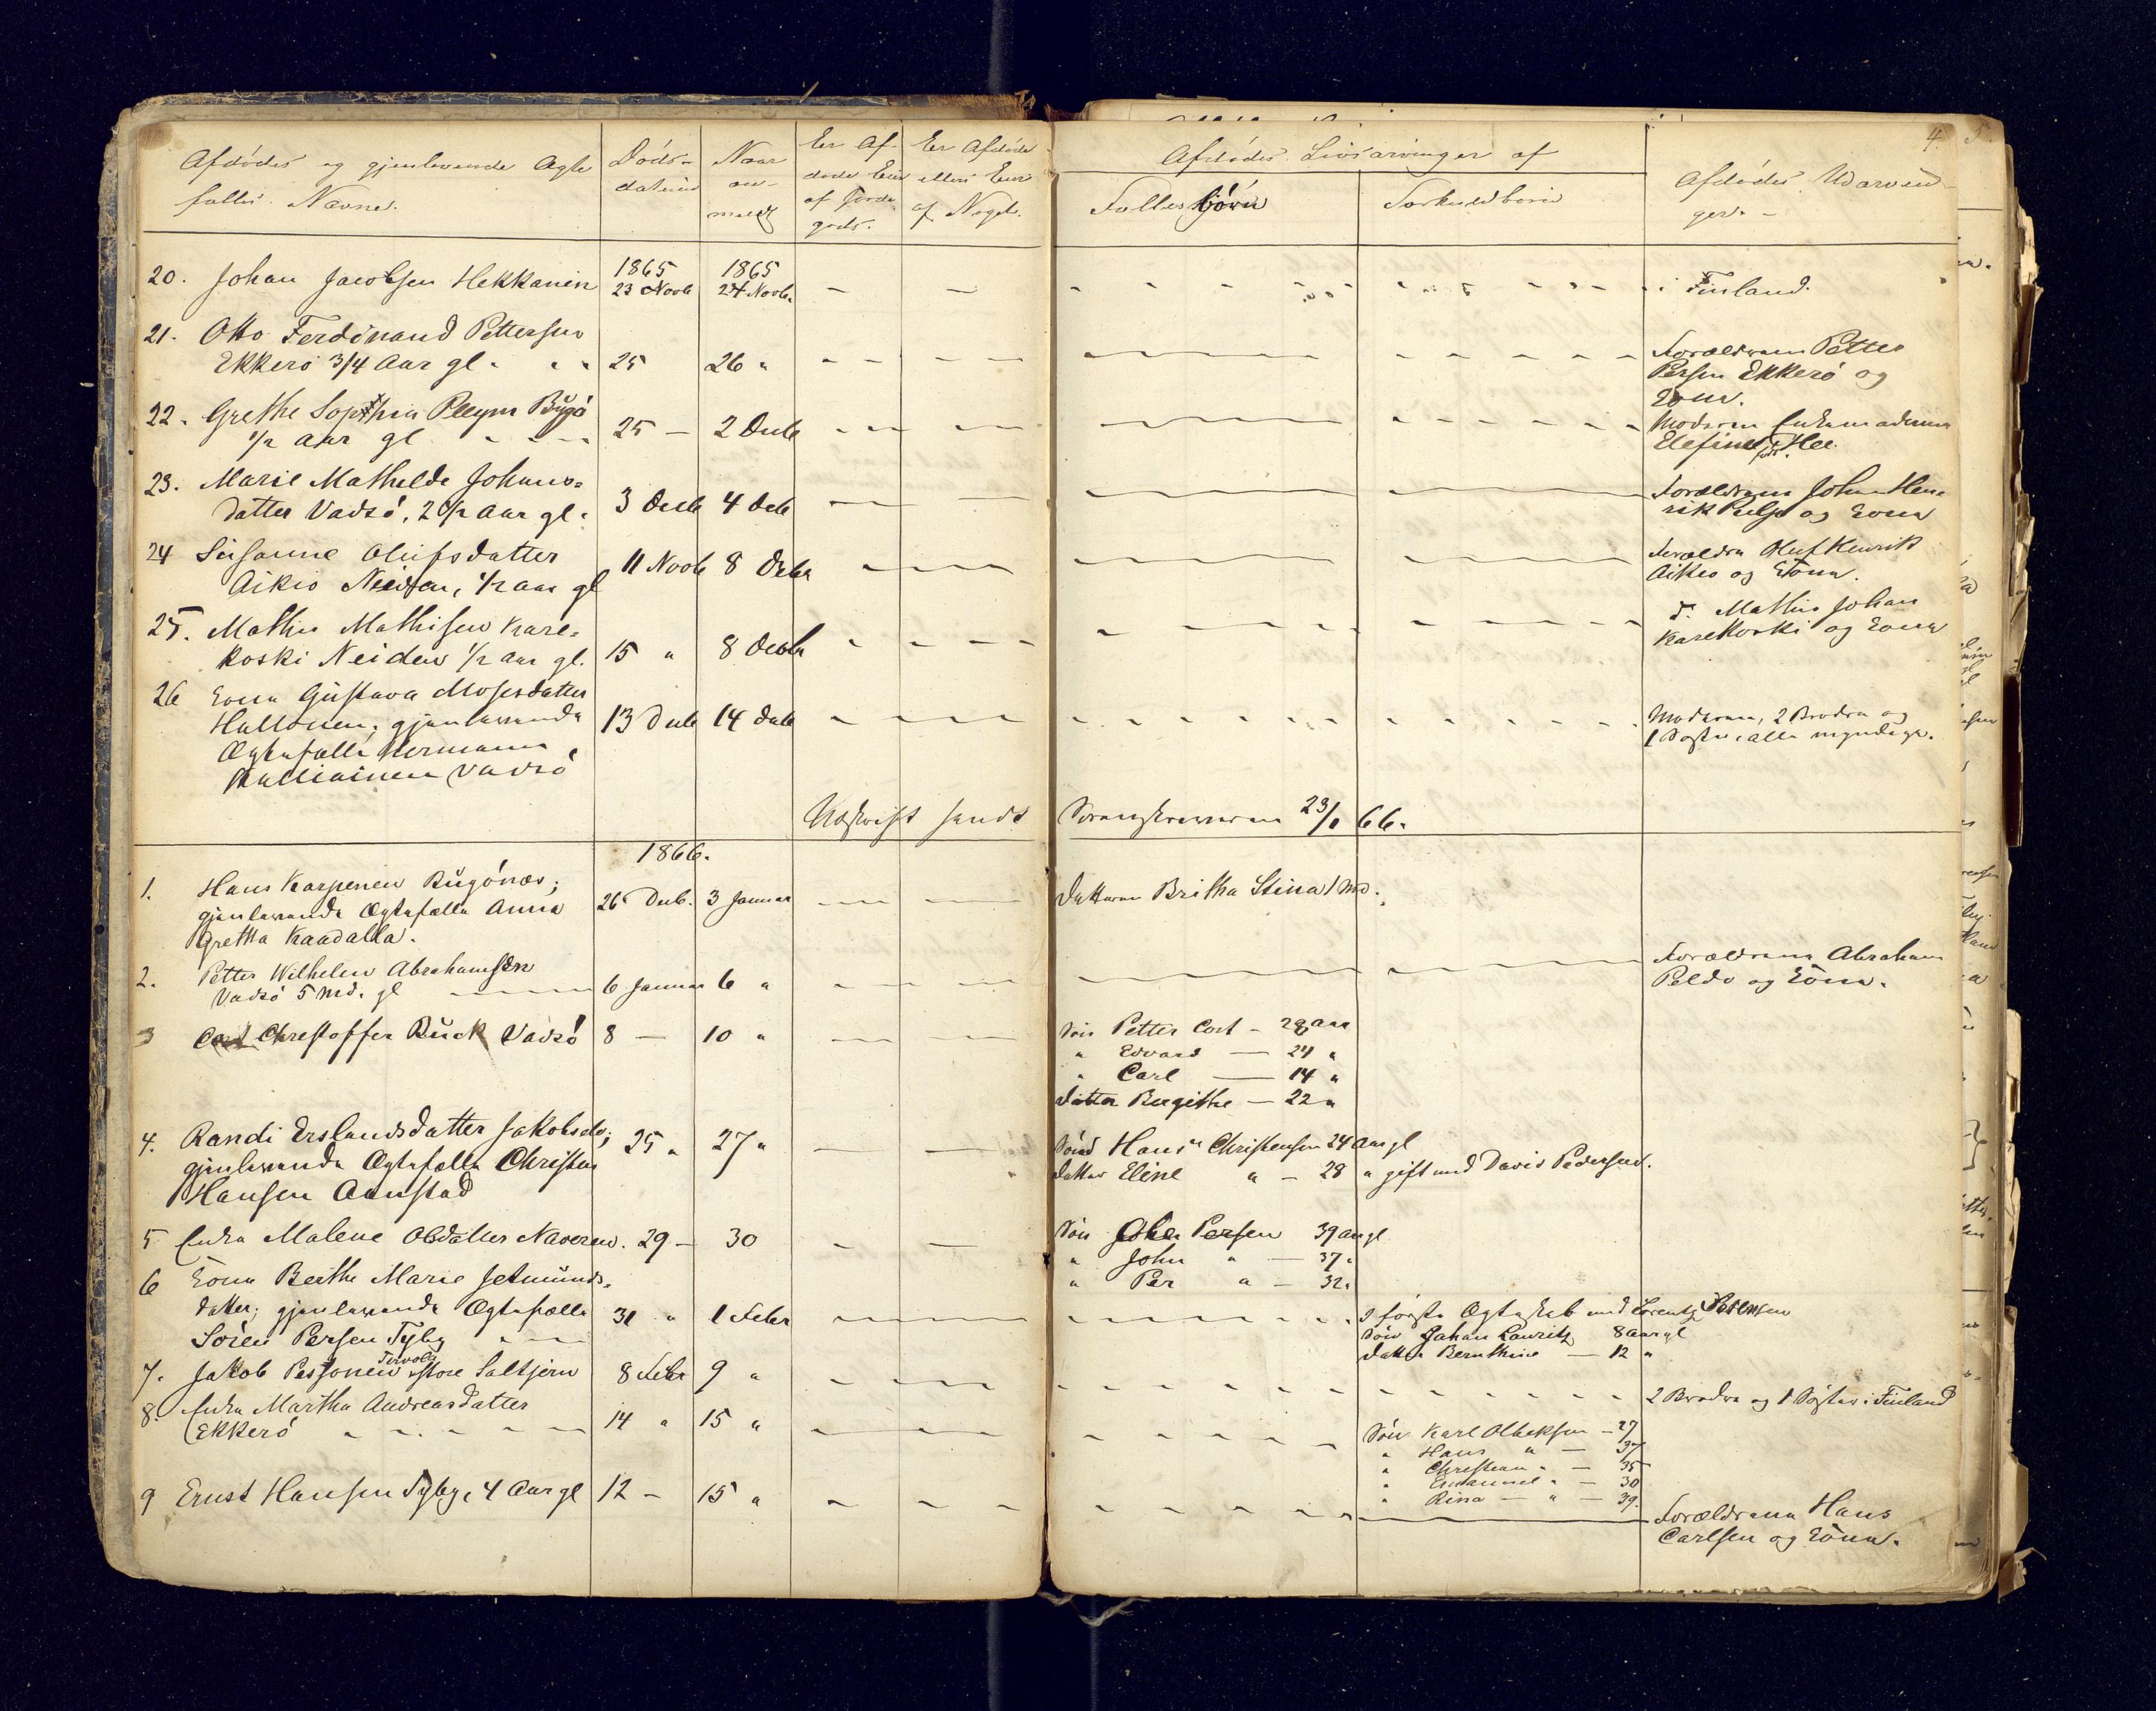 4. 5.
Afdødes og gjenlevende Ægte
fælles Navne.
Døds-
datum
Naar
an-
meldt
Er Af-
døde Eier
af Jorde
gods.
Er Afdøde
ellers Eier
af Noget.
Afdødes Livsarvinger af
Fællesbørn
Særkuldbørn
Afdødes Udarvin-
ger. -
20. Johan Jacobsen Hekkanen 1865 23 Novb 1865 24 Novbr. — — i Finland.
21. Otto Ferdinand Pettersen
Ekkerö 3/4 Aar gl. 25 26 "
Forældrene Petter
Persen Ekkerö og
Kone.
22. Grethe Sophia Pleym Bugö
1/2 Aar gl. 25 — 2 Decb
Moderen Enkemadame
født Klee.
23. Marie Mathilde Johans-
datter Vadsö, 2 1/2 Aar gl. 3 Decb 4 Decb
Forældrene Johan Hen-
rik og Kone
24 Susanne Olufsdatter
Aikio Neiden, 1/2 aar gl 11 Novb 8 Decbr
Forældre Oluf Henrik
Aikio og Kone.
25. Mathis Mathisen Kare-
koski Neiden 1/2 Aar gl. 15 " 8 Decbr
d. Mathis Johan
Karekoski og Kone
26 Kone Gustava Mosesdatter
Hultonen, gjenlevende
Ægtefælle Hermann
Vadsö
13 Decb 14 Decb
Moderen, 2 Brødre og
1 Søster, alle myndige.
Udskrift sendt Sorenskriveren 23/1 66.
1866.
1. Hans Karpenen Bugönæs;
gjenlevende Ægtefælle Anna
Gretha Kaadalla.
26 Decb. 3 Januar
Datteren Britha Stina 1 Md.
2. Petter Wilhelm Abrahamsen
Vadsö 5 Md. gl 6 Januar 6 "
Forældrene Abraham
Peldo og Kone.
3 Christoffer Buck Vadsö 8 — 10 "
Søn Petter Cort — 28 Aar
" Edvard — 24 "
" Carl — 14 "
Datter Birgithe — 22 "
4. Randi Erslandsdatter Jakobselv;
gjenlevende Ægtefælle Christen
Hansen Aunstad
25 " 27 "
Søn Hans Christensen 24 Aar gl
Datter Eline " — 28 " gift med David Pedersen.
5 Enke Malene Olsdatter Naveren. 29 — 30
Søn Persen 39 Aar gl
" John " — 37 "
" Per " — 32 "
6 Kone Berthe Marie Jetmunds-
datter; gjenlevende Ægtefælle
Sören Persen Tyby
31 " 1 Febr
I første Ægteskab med Lorentz Petersen
Søn Johan Lauritz 8 Aar gl
Datter Bernthine — 12 "
7. Jakob Pesonen Tervola store Saltjern 8 Febr 9 "
2 Brødre og 1 Søster i Finland
8. Enke Martha Andreasdatter
Ekkerö 14 " 15 "
Søn Karl Olbeksen — 27
" Hans " — 37
" Christian " — 35
" Emanuel " — 30
" Rina — " — 39.
9 Ernst Hansen Tyby, 4 Aar gl 12 — 15 "
Forældrene Hans
Carlsen og Kone.